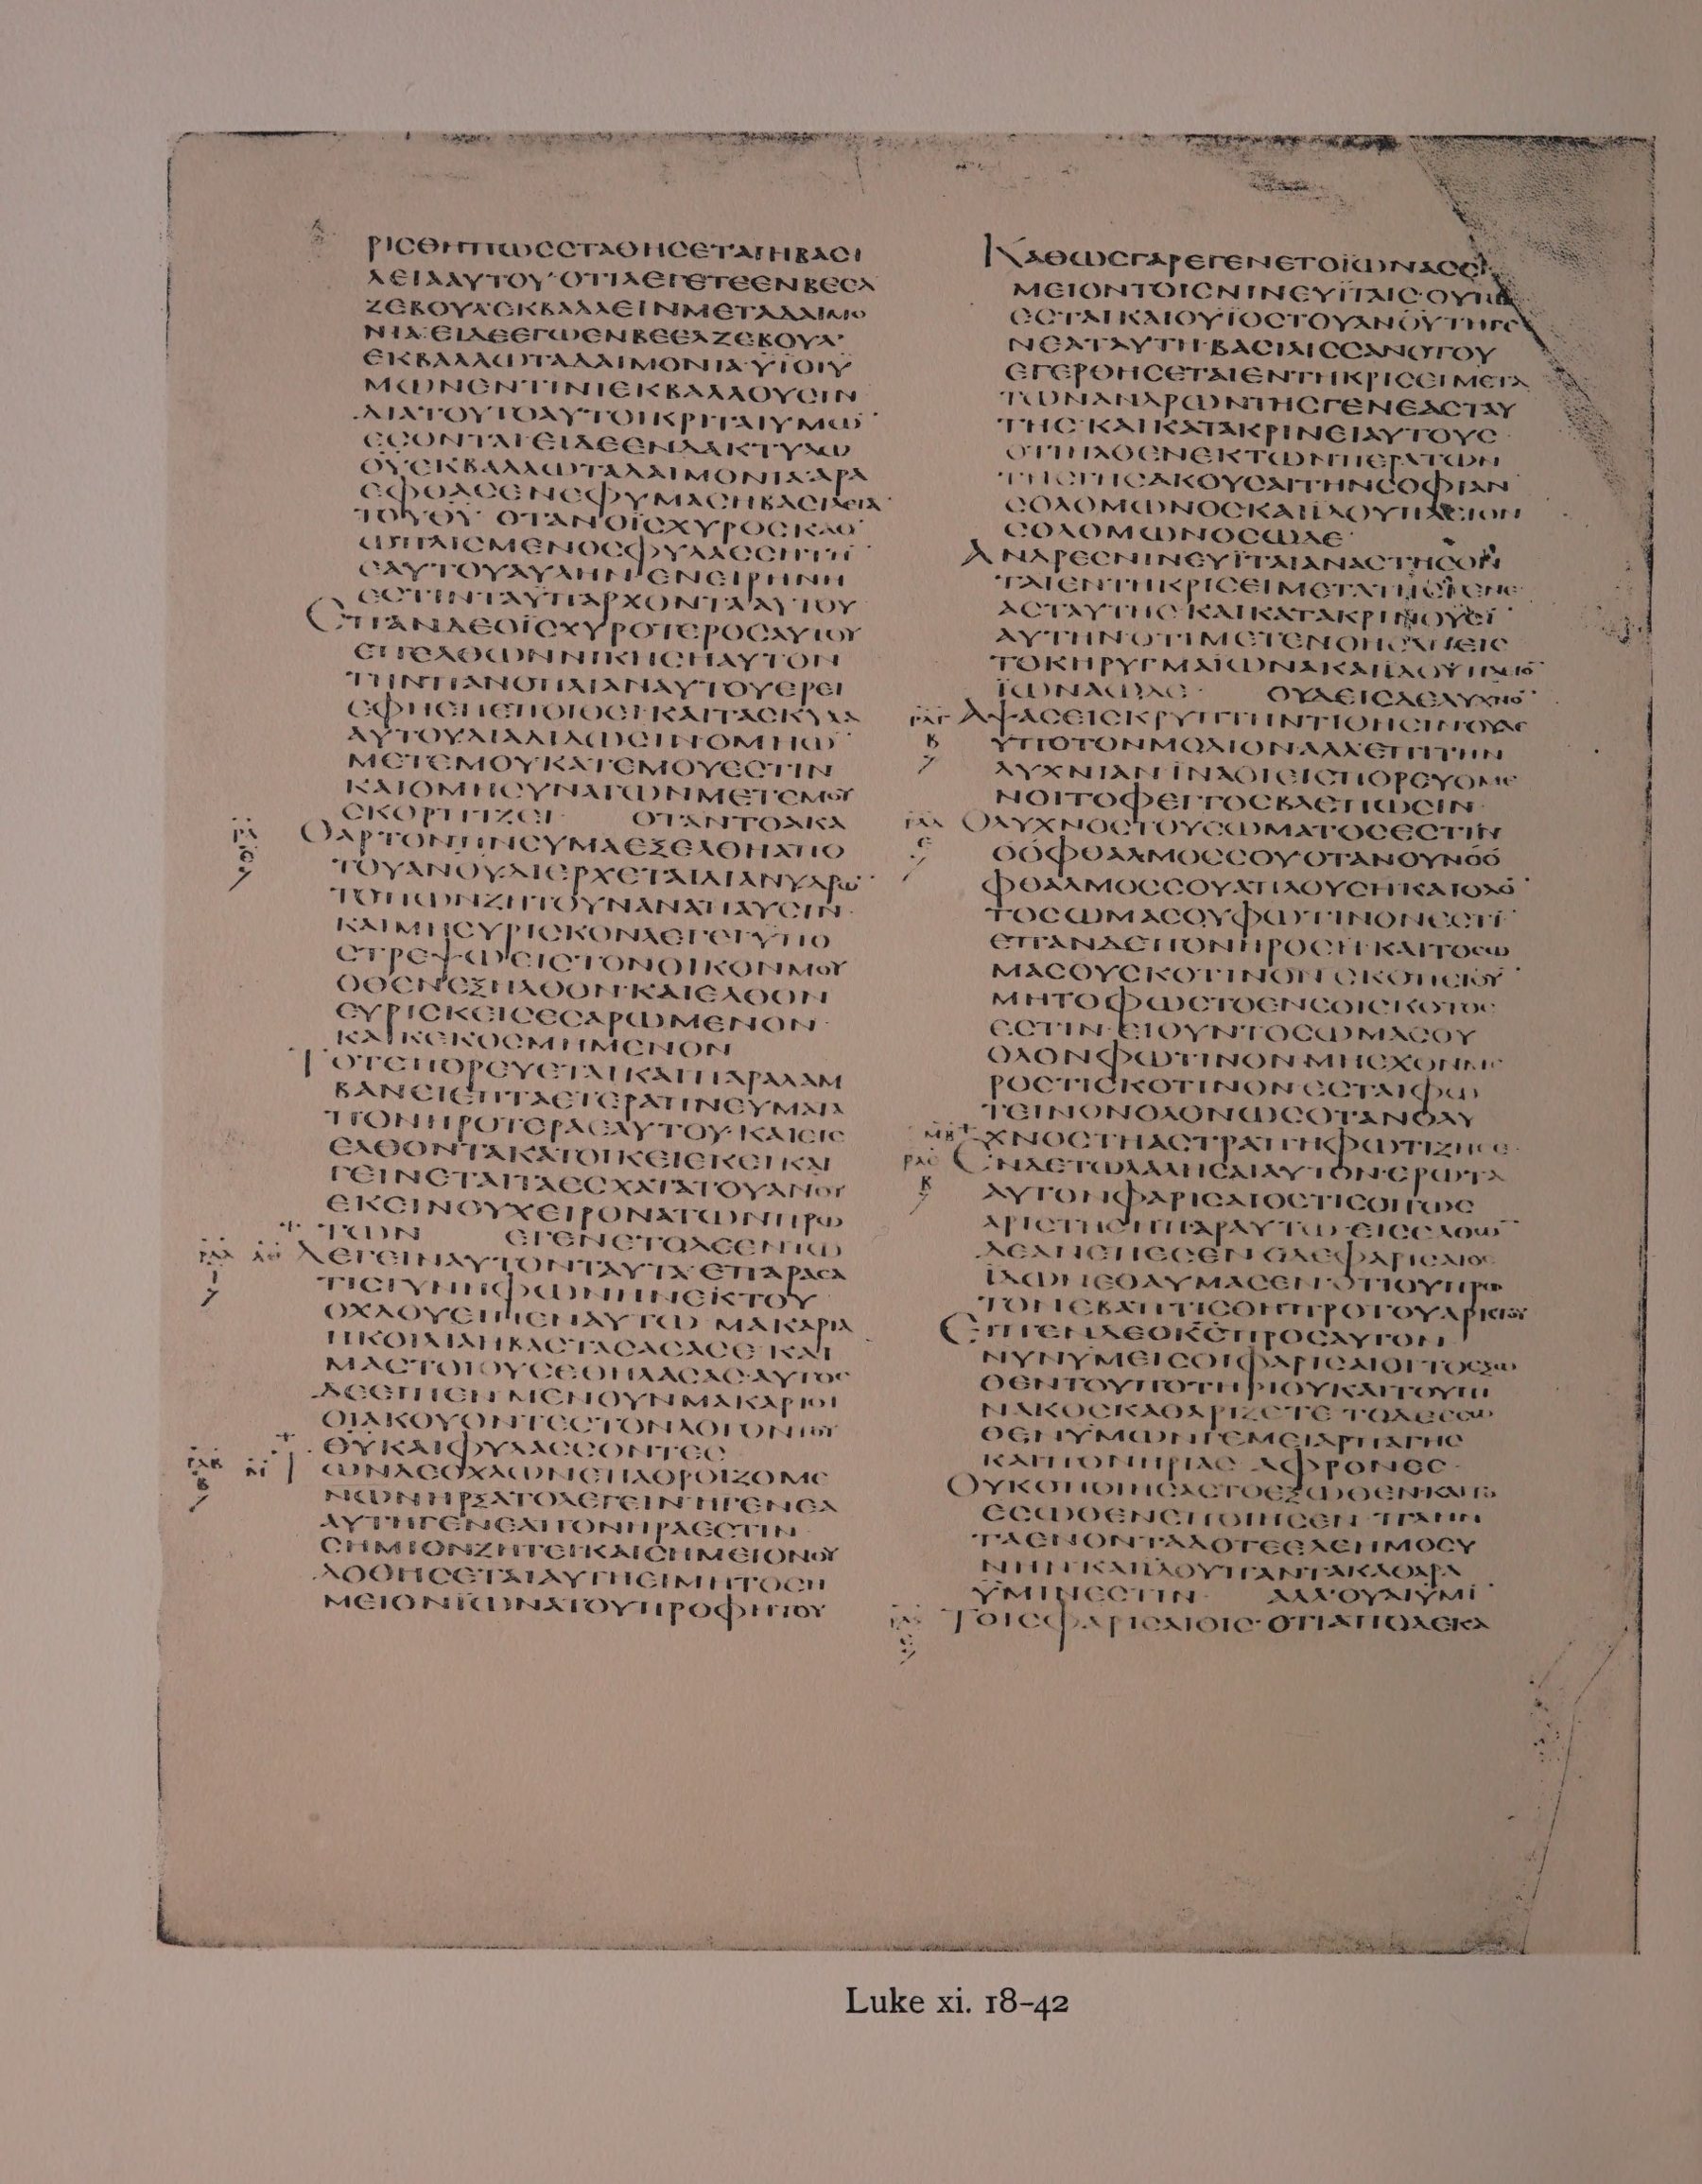 ΡΙϹΘΗΠΩϹϹΤΑΘΗϹΕΤΑΙΗΒΑϹΙ
ΛΕΙΑΑΥΤΟΥ·ΟΤΙΛΕΓΕΤΕΕΝΒΕΕΛ
ΖΕΒΟΥΛΕΚΒΑΛΛΕΙΝΜΕΤΑΔΑΙΜΟ
ΝΙΑ·ΕΙΔΕΕΓΩΕΝΒΕΕΛΖΕΒΟΥΛ
ΕΚΒΑΛΛΩΤΑΔΑΙΜΟΝΙΑ·ΥΪΟΙΥ
ΜΩΝΕΝΤΙΝΙΕΚΒΑΛΛΟΥϹΙΝ
ΔΙΑΤΟΥΤΟΑΥΤΟΙΚΡΙΤΑΙΥΜΩ̄
ΕϹΟΝΤΑΙ·ΕΙΔΕΕΝΔΑΚΤΥΛΩ
Θ̄ῩΕΚΒΑΛΛΩΤΑΔΑΙΜΟΝΙΑΑΡΑ
ΕΦΘΑϹΕΝΕΦΥΜΑϹΗΒΑϹΙΛΕΙΑ
ΤΟΥΘ̄Ῡ· ΟΤΑΝΟΪϹΧΥΡΟϹΚΑΘ
ΩΠΛΙϹΜΕΝΟϹΦΥΛΑϹϹΗΤΗ̄
ΕΑΥΤΟΥΑΥΛΗΝΕΝΕΙΡΗΝΗ
ΕϹΤΙΝΤΑΥΠΑΡΧΟΝΤΑΑΥΤΟΥ
ΕΠΑΝΔΕΟΪϹΧΥΡΟΤΕΡΟϹΑΥΤΟΥ
ΕΠΕΛΘΩΝΝΙΚΗϹΗΑΥΤΟΝ
ΤΗΝΠΑΝΟΠΛΙΑΝΑΥΤΟΥΕΡΕΙ
ΕΦΗϹΕΠΕΠΟΙΘΕΙΚΑΙΤΑϹΚΥΛΑ
ΑΥΤΟΥΔΙΑΔΙΔΩϹΙΝΟΜΗΩ̄
ΜΕΤΕΜΟΥΚΑΤΕΜΟΥΕϹΤΙΝ
ΚΑΙΟΜΗϹΥΝΑΓΩΝΜΕΤΕΜΟΥ
ϹΚΟΡΠΙΖΕΙ· ΟΤΑΝΤΟΑΚΑ
ΘΑΡΤΟΝΠΝΕΥΜΑΕΞΕΛΘΗΑΠΟ
ΤΟΥΑΝΟΥΔΙΕΡΧΕΤΑΙΔΙΑΝΥΔΡΩ̄
ΤΟΠΩΝΖΗΤΟΥΝΑΝΑΠΑΥϹΙΝ·
ΚΑΙΜΗΕΥΡΙϹΚΟΝΛΕΓΕΙ·ΥΠΟ
ϹΤΡΕΨΩΕΙϹΤΟΝΟΙΚΟΝΜΟΥ
ΟΘΕΝΕΞΗΛΘΟΝ·ΚΑΙΕΛΘΟΝ
ΕΥΡΙϹΚΕΙϹΕϹΑΡΩΜΕΝΟΝ·
ΚΑΙΚΕΚΟϹΜΗΜΕΝΟΝ
ΤΟΤΕΠΟΡΕΥΕΤΑΙΚΑΙΠΑΡΑΛΑΜ
ΒΑΝΕΙΕΠΤΑΕΤΕΡΑΠΝΕΥΜΑΤΑ
ΠΟΝΗΡΟΤΕΡΑΕΑΥΤΟΥ·ΚΑΙΕΙϹ
ΕΛΘΟΝΤΑΚΑΤΟΙΚΕΙΕΚΕΙΚΑΙ
ΓΕΙΝΕΤΑΙΤΑΕϹΧΑΤΑΤΟΥΑΝΟΥ
ΕΚΕΙΝΟΥΧΕΙΡΟΝΑΤΩΝΠΡΩ
ΤΩΝ ΕΓΕΝΕΤΟΔΕΕΝΤΩ
ΛΕΓΕΙΝΑΥΤΟΝΤΑΥΤΑ·ΕΠΑΡΑϹΑ
ΤΙϹΓΥΝΗΦΩΝΗΝΕΚΤΟΥ
ΟΧΛΟΥΕΙΠΕΝΑΥΤΩ· ΜΑΚΑΡΙΑ
ΗΚΟΙΛΙΑΗΒΑϹΤΑϹΑϹΑϹΕ·ΚΑΙ
ΜΑϹΤΟΙΟΥϹΕΘΗΛΑϹΑϹ·ΑΥΤΟϹ
ΔΕΕΙΠΕΝ· ΜΕΝΟΥΝΜΑΚΑΡΙΟΙ
ΟΙΑΚΟΥΟΝΤΕϹΤΟΝΛΟΓΟΝΤΟΥ
Θ̄ῩΚΑΙΦΥΛΑϹϹΟΝΤΕϹ
ΤΩΝΔΕΟΧΛΩΝΕΠΑΘΡΟΙΖΟΜΕ
ΝΩΝΗΡΞΑΤΟΛΕΓΕΙΝ·ΗΓΕΝΕΑ
ΑΥΤΗΓΕΝΕΑΠΟΝΗΡΑΕϹΤΙΝ·
ϹΗΜΙΟΝΖΗΤΕΙΚΑΙϹΗΜΕΙΟΝΟΥ
ΔΟΘΗϹΕΤΑΙΑΥΤΗΕΙΜΗΤΟϹΗ
ΜΕΙΟΝΪΩΝΑΤΟΥΠΡΟΦΗΤΟΥ
ΚΑΘΩϹΓΑΡΕΓΕΝΕΤΟΪΩΝΑϹϹΗ
ΜΕΙΟΝΤΟΙϹΝΙΝΕΥΪΤΑΙϹ·ΟΥΤΩϹ
ΕϹΤΑΙΚΑΙΟΥΪΟϹΤΟΥΑΝΟΥΤΗΓΕ
ΝΕΑΤΑΥΤΗ·ΒΑϹΙΛΙϹϹΑΝΟΤΟΥ
ΕΓΕΡΘΗϹΕΤΑΙΕΝΤΗΚΡΙϹΕΙΜΕΤΑ
ΤΩΝΑΝΔΡΩΝΤΗϹΓΕΝΕΑϹΤΑΥ
ΤΗϹ·ΚΑΙΚΑΤΑΚΡΙΝΕΙΑΥΤΟΥϹ·
ΟΤΙΗΛΘΕΝΕΚΤΩΝΠΕΡΑΤΩΝ
ΤΗϹΓΗϹΑΚΟΥϹΑΙΤΗΝϹΟΦΙΑΝ
ϹΟΛΟΜΩΝΟϹΚΑΙΪΔΟΥΠΛΕΙΟΝ
ϹΟΛΟΜΩΝΟϹΩΔΕ·
ΑΝΔΡΕϹΝΙΝΕΥΪΤΑΙΑΝΑϹΤΗϹΟΝ
ΤΑΙΕΝΤΗΚΡΙϹΕΙΜΕΤΑΤΗϹΓΕΝΕ
ΑϹΤΑΥΤΗϹ·ΚΑΙΚΑΤΑΚΡΙΝΟΥϹΪ
ΑΥΤΗΝΟΤΙΜΕΤΕΝΟΗϹΑΝΕΙϹ
ΤΟΚΗΡΥΓΜΑΪΩΝΑΚΑΙΪΔΟΥΠΛΕΙΟ̄
ΪΩΝΑΩΔΕ· ΟΥΔΕΙϹΔΕΛΥΧΝΟ̄
ΑΨΑϹΕΙϹΚΡΥΠΤΗΝΤΙΘΗϹΙΝΟΥΔΕ
ΥΠΟΤΟΝΜΟΔΙΟΝΑΛΛΕΠΙΤΗΝ
ΛΥΧΝΙΑΝΪΝΑΟΙΕΙϹΠΟΡΕΥΟΜΕ
ΝΟΙΤΟΦΕΓΓΟϹΒΛΕΠΩϹΙΝ·
ΟΛΥΧΝΟϹΤΟΥϹΩΜΑΤΟϹΕϹΤΙΝ
ΟΟΦΘΑΛΜΟϹϹΟΥ·ΟΤΑΝΟΥΝΟΟ
ΦΘΑΛΜΟϹϹΟΥΑΠΛΟΥϹΗΚΑΙΟΛΟ̄
ΤΟϹΩΜΑϹΟΥΦΩΤΙΝΟΝΕϹΤῙ
ΕΠΑΝΔΕΠΟΝΗΡΟϹΗ·ΚΑΙΤΟϹΩ
ΜΑϹΟΥϹΚΟΤΙΝΟΝ ϹΚΟΠΕΙΟῩ
ΜΗΤΟΦΩϹΤΟΕΝϹΟΙϹΚΟΤΟϹ
ΕϹΤΙΝ·ΕΙΟΥΝΤΟϹΩΜΑϹΟΥ
ΟΛΟΝΦΩΤΙΝΟΝ·ΜΗΕΧΟΝΜΕ
ΡΟϹΤΙϹΚΟΤΙΝΟΝ·ΕϹΤΑΙΦΩ
ΤΕΙΝΟΝΟΛΟΝΩϹΟΤΑΝΟΛΥ
ΧΝΟϹΤΗΑϹΤΡΑΠΗΦΩΤΙΖΗϹΕ·
ΕΝΔΕΤΩΛΑΛΗϹΑΙΑΥΤΟΝ·ΕΡΩΤΑ
ΑΥΤΟΝΦΑΡΙϹΑΙΟϹΤΙϹΟΠΩϹ
ΑΡΙϹΤΗϹΗΠΑΡΑΥΤΩ·ΕΙϹΕΛΘΩ̄
ΔΕΑΝΕΠΕϹΕΝ ΟΔΕΦΑΡΙϹΑΙΟϹ
ΪΔΩΝΕΘΑΥΜΑϹΕΝ·ΟΤΙΟΥΠΡΩ
ΤΟΝΕΒΑΠΤΙϹΘΗΠΡΟΤΟΥΑΡΙϹΤΟΥ
ΕΙΠΕΝΔΕΟΚ̄ϹΠΡΟϹΑΥΤΟΝ
ΝΥΝΥΜΕΙϹΟΙΦΑΡΙϹΑΙΟΙ·ΤΟΕΞΩ
ΘΕΝΤΟΥΠΟΤΗΡΙΟΥΚΑΙΤΟΥΠΙ
ΝΑΚΟϹΚΑΘΑΡΙΖΕΤΕ·ΤΟΔΕΕϹΩ
ΘΕΝΥΜΩΝΓΕΜΕΙΑΡΠΑΓΗϹ
ΚΑΙΠΟΝΗΡΙΑϹ· ΑΦΡΟΝΕϹ·
ΟΥΚΟΠΟΙΗϹΑϹΤΟΕΞΩΘΕΝΚΑΙΤΟ
ΕϹΩΘΕΝΕΠΟΙΗϹΕΝ· ΠΛΗΝ
ΤΑΕΝΟΝΤΑΔΟΤΕΕΛΕΗΜΟϹΥ
ΝΗΝ·ΚΑΙΪΔΟΥΠΑΝΤΑΚΑΘΑΡΑ
ΫΜΙΝΕϹΤΙΝ· ΑΛΛΟΥΑΙΫΜῙ
ΤΟΙϹΦΑΡΙϹΑΙΟΙϹ·ΟΤΙΑΠΟΔΕΚΑ
Luke xi. 18–42